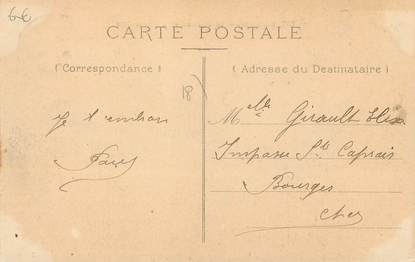 6€
CARTE POSTALE
(Correspondance)
(Adresse du Destinataire)
18
Je t'embras
Mlle Girault
Impasse St Caprais
Bourges
Cher